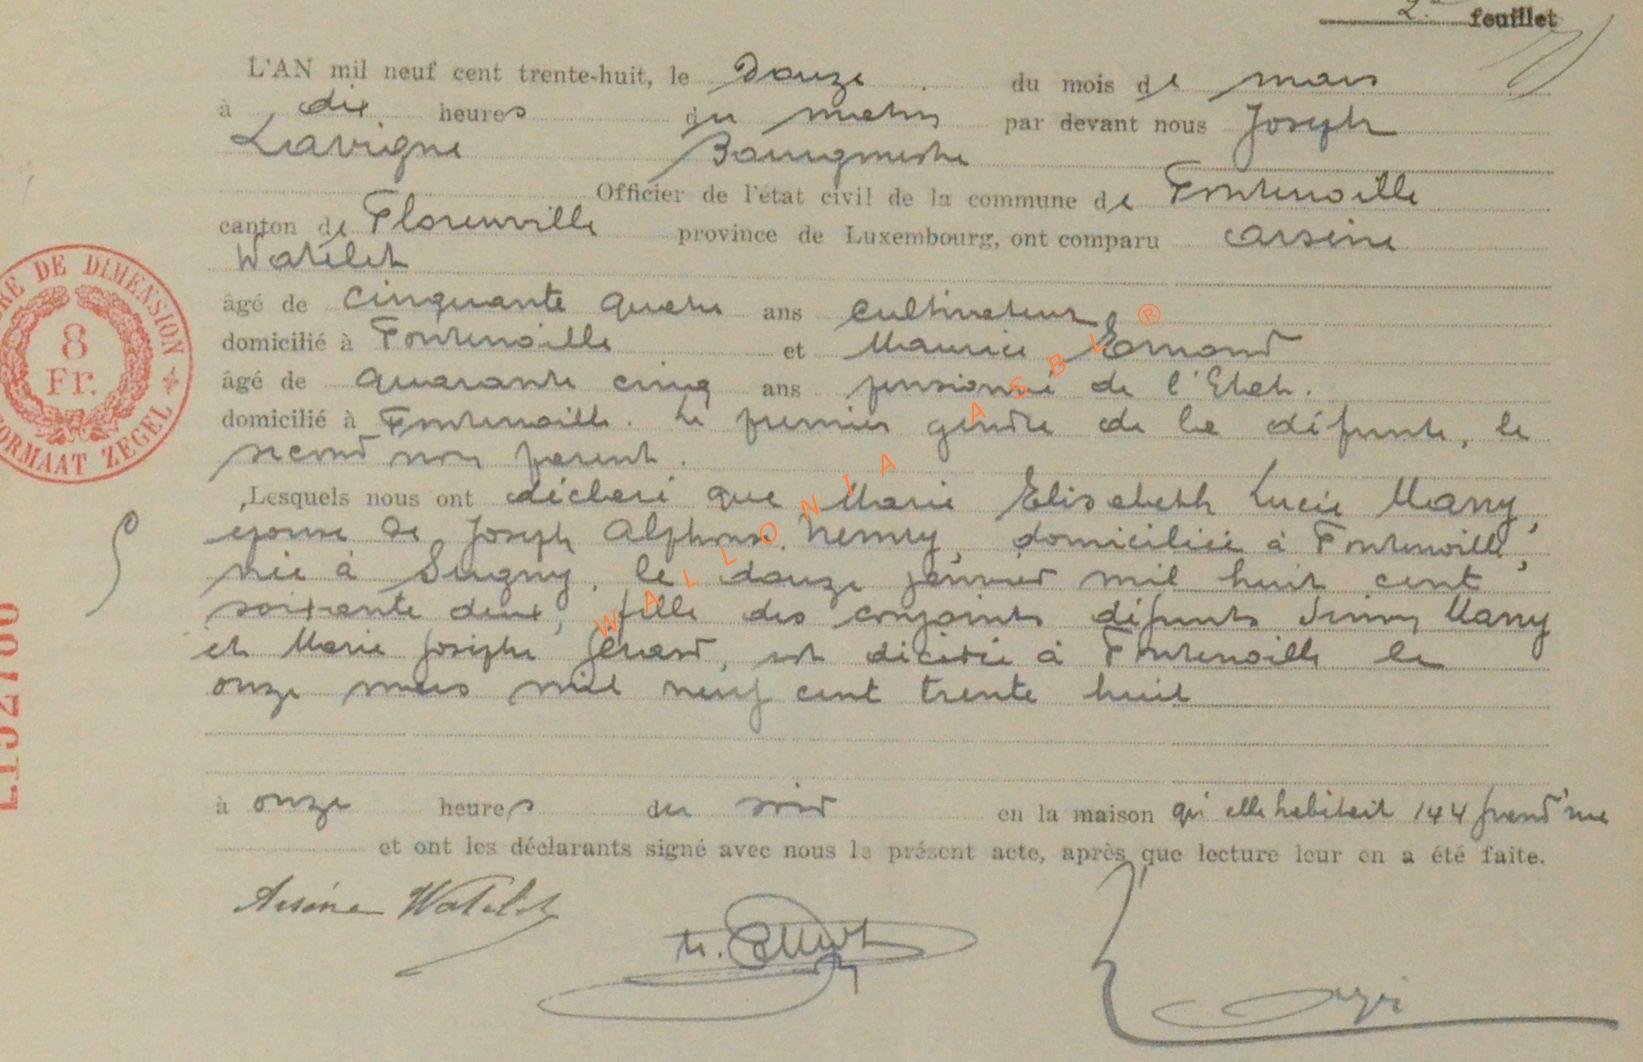 2e feuillet
L'AN mil neuf cent trente-huit, le Douze du mois de mars
à dix heures du matin par devant nous Joseph
Lavigne Bourgmestre
Officier de l'état civil de la commune de Fontenoille
canton de Florenville province de Luxembourg, ont comparu Arsène
Watelet
âgé de cinquante quatre ans cultivateur
domicilié à Fontenoille et Maurice Emond
âgé de quarante cinq ans pensionné de l'Etat.
domicilié à Fontenoille. Le premier gendre de la défunte, le
second non parent.
Lesquels nous ont déclaré que Marie Elisabeth Lucie Marry,
épouse de Joseph Alphonse Nemry, domiciliée à Fontenoille,
née à Sugny, le douze janvier mil huit cent
soixante deux, fille des conjoints défunts Marry
et Marie Josèphe Gérard, est décédée à Fontenoille le
onze mars mil neuf cent trente huit
à onze heures du soir en la maison qu'elle habitait 144 grand'rue
et ont les déclarants signé avec nous le présent acte, après que lecture leur en a été faite.
Arsène Watelet
M. Emond
TIMBRE DE DIMENSION
8
Fr.
FORMAAT ZEGEL
WALLONIA ASBL ®